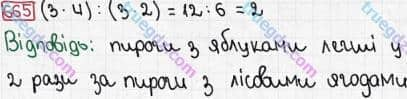 665 (3·4):(3·2)=12:6=2
Відповідь: пироги з яблуками легші у
2 рази за пироги з лісовими ягодами